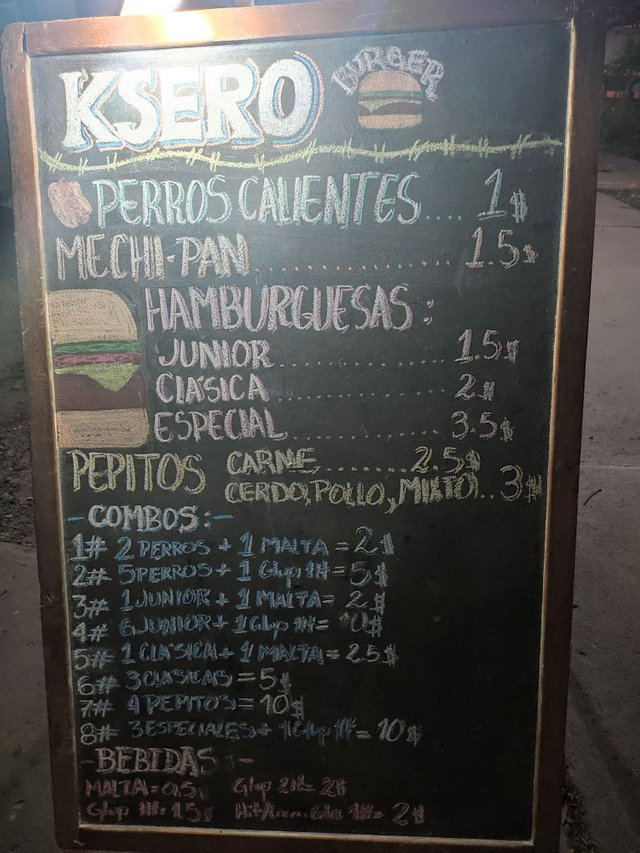 KSERO BURGER
PERROS CALIENTES.... 1$
MECHI-PAN.................. 1.5$
HAMBURGUESAS:
JUNIOR................ 1.5$
CLÁSICA................ 2$
ESPECIAL................ 3.5$
PEPITOS CARNE.......... 2.5$
CERDO, POLLO, MIXTO.. 3$
-COMBOS:-
1# 2 PERROS + 1 MALTA = 2$
2# 5 PERROS + 1 Glup 1lt = 5$
3# 1 JUNIOR + 1 MALTA = 2$
4# 6 JUNIOR + 1 Glup 1lt = 10$
5# 1 CLASICA + 1 MALTA = 2.5$
6# 3 CLASICAS = 5$
7# 4 PEPITOS = 10$
8# 3 ESPECIALES + 1 Glup 1lt = 10$
-BEBIDAS:-
MALTA = 0,5$ Glup 2lt = 2$
Glup 1lt = 1.5$ Hit 1lt = 2$